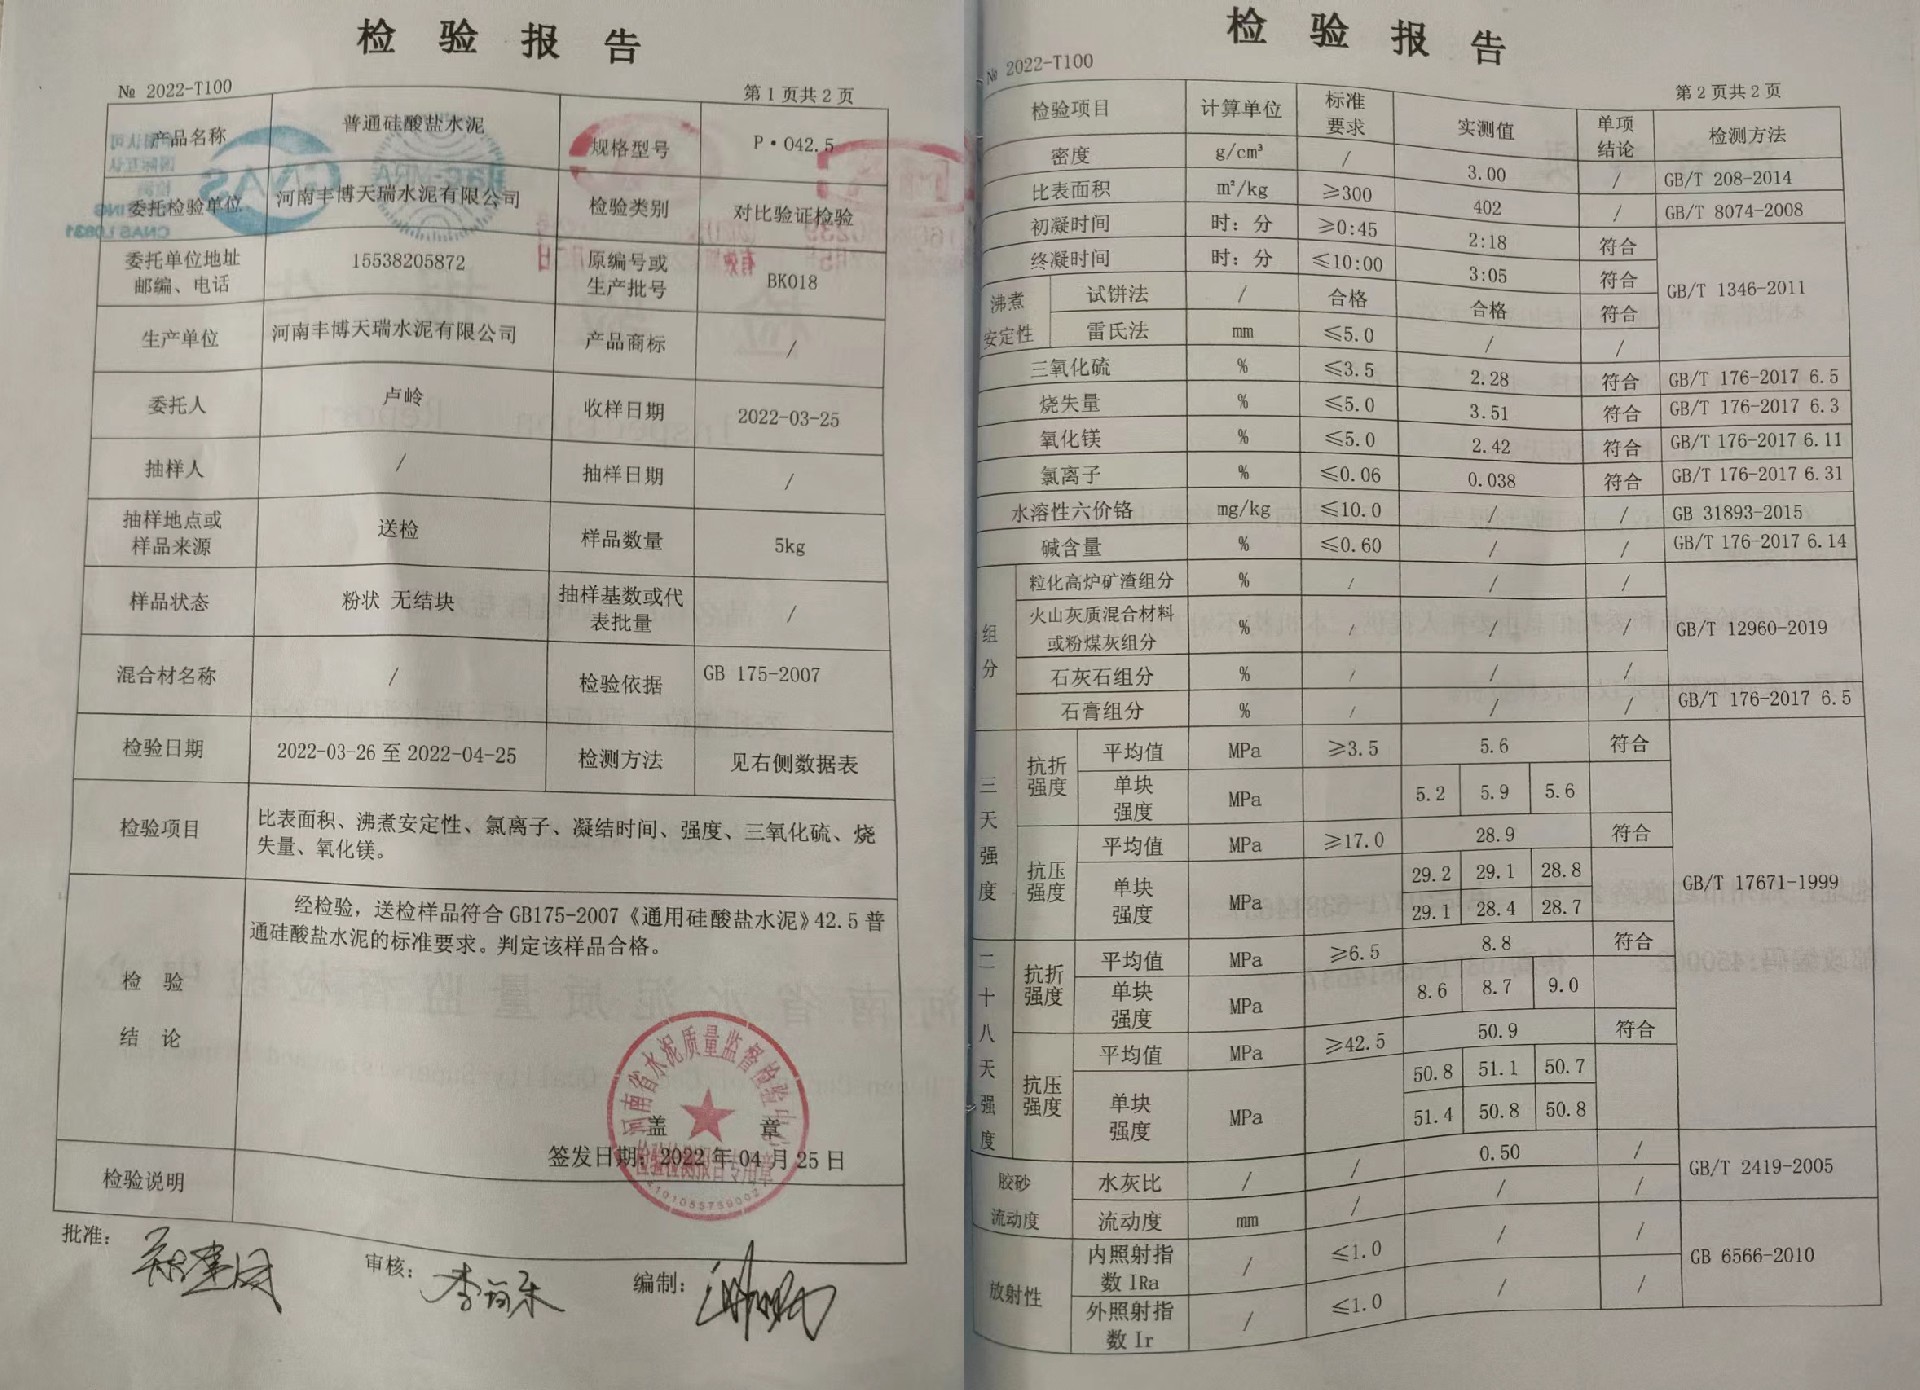 检 验 报 告
№ 2022-T100
第1页共2页
产品名称 普通硅酸盐水泥 规格型号 P·O42.5
委托检验单位 河南丰博天瑞水泥有限公司 检验类别 对比验证检验
委托单位地址
邮编、电话 15538205872 原编号或
生产批号 BK018
生产单位 河南丰博天瑞水泥有限公司 产品商标 /
委托人 卢岭 收样日期 2022-03-25
抽样人 / 抽样日期 /
抽样地点或
样品来源 送检 样品数量 5kg
样品状态 粉状 无结块 抽样基数或代
表批量 /
混合材名称 / 检验依据 GB 175-2007
检验日期 2022-03-26 至 2022-04-25 检测方法 见右侧数据表
检验项目 比表面积、沸煮安定性、氯离子、凝结时间、强度、三氧化硫、烧
失量、氧化镁。
检 验
结 论
经检验，送检样品符合GB175-2007《通用硅酸盐水泥》42.5普
通硅酸盐水泥的标准要求。判定该样品合格。
河南省水泥质量监督检验中心
盖 章
签发日期：2022年04月25日
检验说明
批准：
审核：
编制：
检 验 报 告
№ 2022-T100
第2页共2页
检验项目 计算单位 标准
要求 实测值 单项
结论 检测方法
密度 g/cm³ / 3.00 / GB/T 208-2014
比表面积 m²/kg ≥300 402 / GB/T 8074-2008
初凝时间 时：分 ≥0:45 2:18 符合
终凝时间 时：分 ≤10:00 3:05 符合 GB/T 1346-2011
沸煮
安定性
试饼法 / 合格 合格 符合
雷氏法 mm ≤5.0 / /
三氧化硫 % ≤3.5 2.28 符合 GB/T 176-2017 6.5
烧失量 % ≤5.0 3.51 符合 GB/T 176-2017 6.3
氧化镁 % ≤5.0 2.42 符合 GB/T 176-2017 6.11
氯离子 % ≤0.06 0.038 符合 GB/T 176-2017 6.31
水溶性六价铬 mg/kg ≤10.0 / / GB 31893-2015
碱含量 % ≤0.60 / / GB/T 176-2017 6.14
组
分
粒化高炉矿渣组分 % / / /
火山灰质混合材料
或粉煤灰组分 % / / / GB/T 12960-2019
石灰石组分 % / / /
石膏组分 % / / / GB/T 176-2017 6.5
三天强度
抗折
强度
平均值 MPa ≥3.5 5.6 符合
单块
强度 MPa 5.2 5.9 5.6
抗压
强度
平均值 MPa ≥17.0 28.9 符合
单块
强度 MPa 29.2 29.1 28.8
29.1 28.4 28.7
GB/T 17671-1999
二十八天强度
抗折
强度
平均值 MPa ≥6.5 8.8 符合
单块
强度 MPa 8.6 8.7 9.0
抗压
强度
平均值 MPa ≥42.5 50.9 符合
单块
强度 MPa 50.8 51.1 50.7
51.4 50.8 50.8
胶砂
流动度
水灰比 / / 0.50 / GB/T 2419-2005
流动度 mm / / /
放射性
内照射指
数 IRa / ≤1.0 / / GB 6566-2010
外照射指
数 Ir / ≤1.0 / /